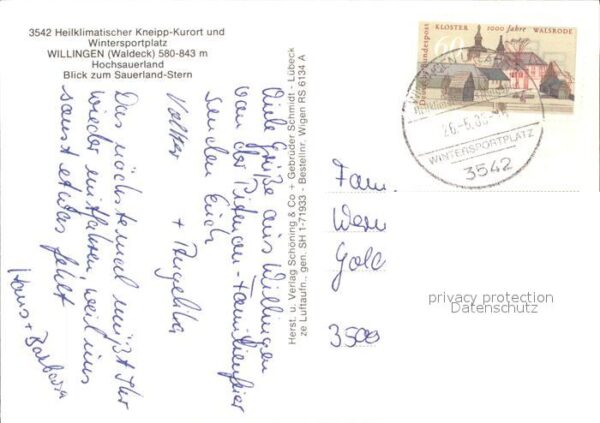 3542 Heilklimatischer Kneipp-Kurort und
Wintersportplatz
WILLINGEN (Waldeck) 580-843 m
Hochsauerland
Blick zum Sauerland-Stern
Viele Grüße aus Willingen
von der Familienfeier
senden Euch
Volker + Angelika
Das nächste mal müßt Ihr
wieder mitfahren, weil uns
sonst etwas fehlt
Hans + Barbara
Herst. u. Verlag Schöning & Co + Gebrüder Schmidt - Lübeck
ze Luftaufn., gen. SH 1-71933 - Bestellnr. Wigen RS 6134 A
KLOSTER 1000 Jahre WALSRODE
Deutsche Bundespost
60
WINTERSPORTPLATZ
3542
Fam.
Wern
Gold
3500
privacy protection
Datenschutz